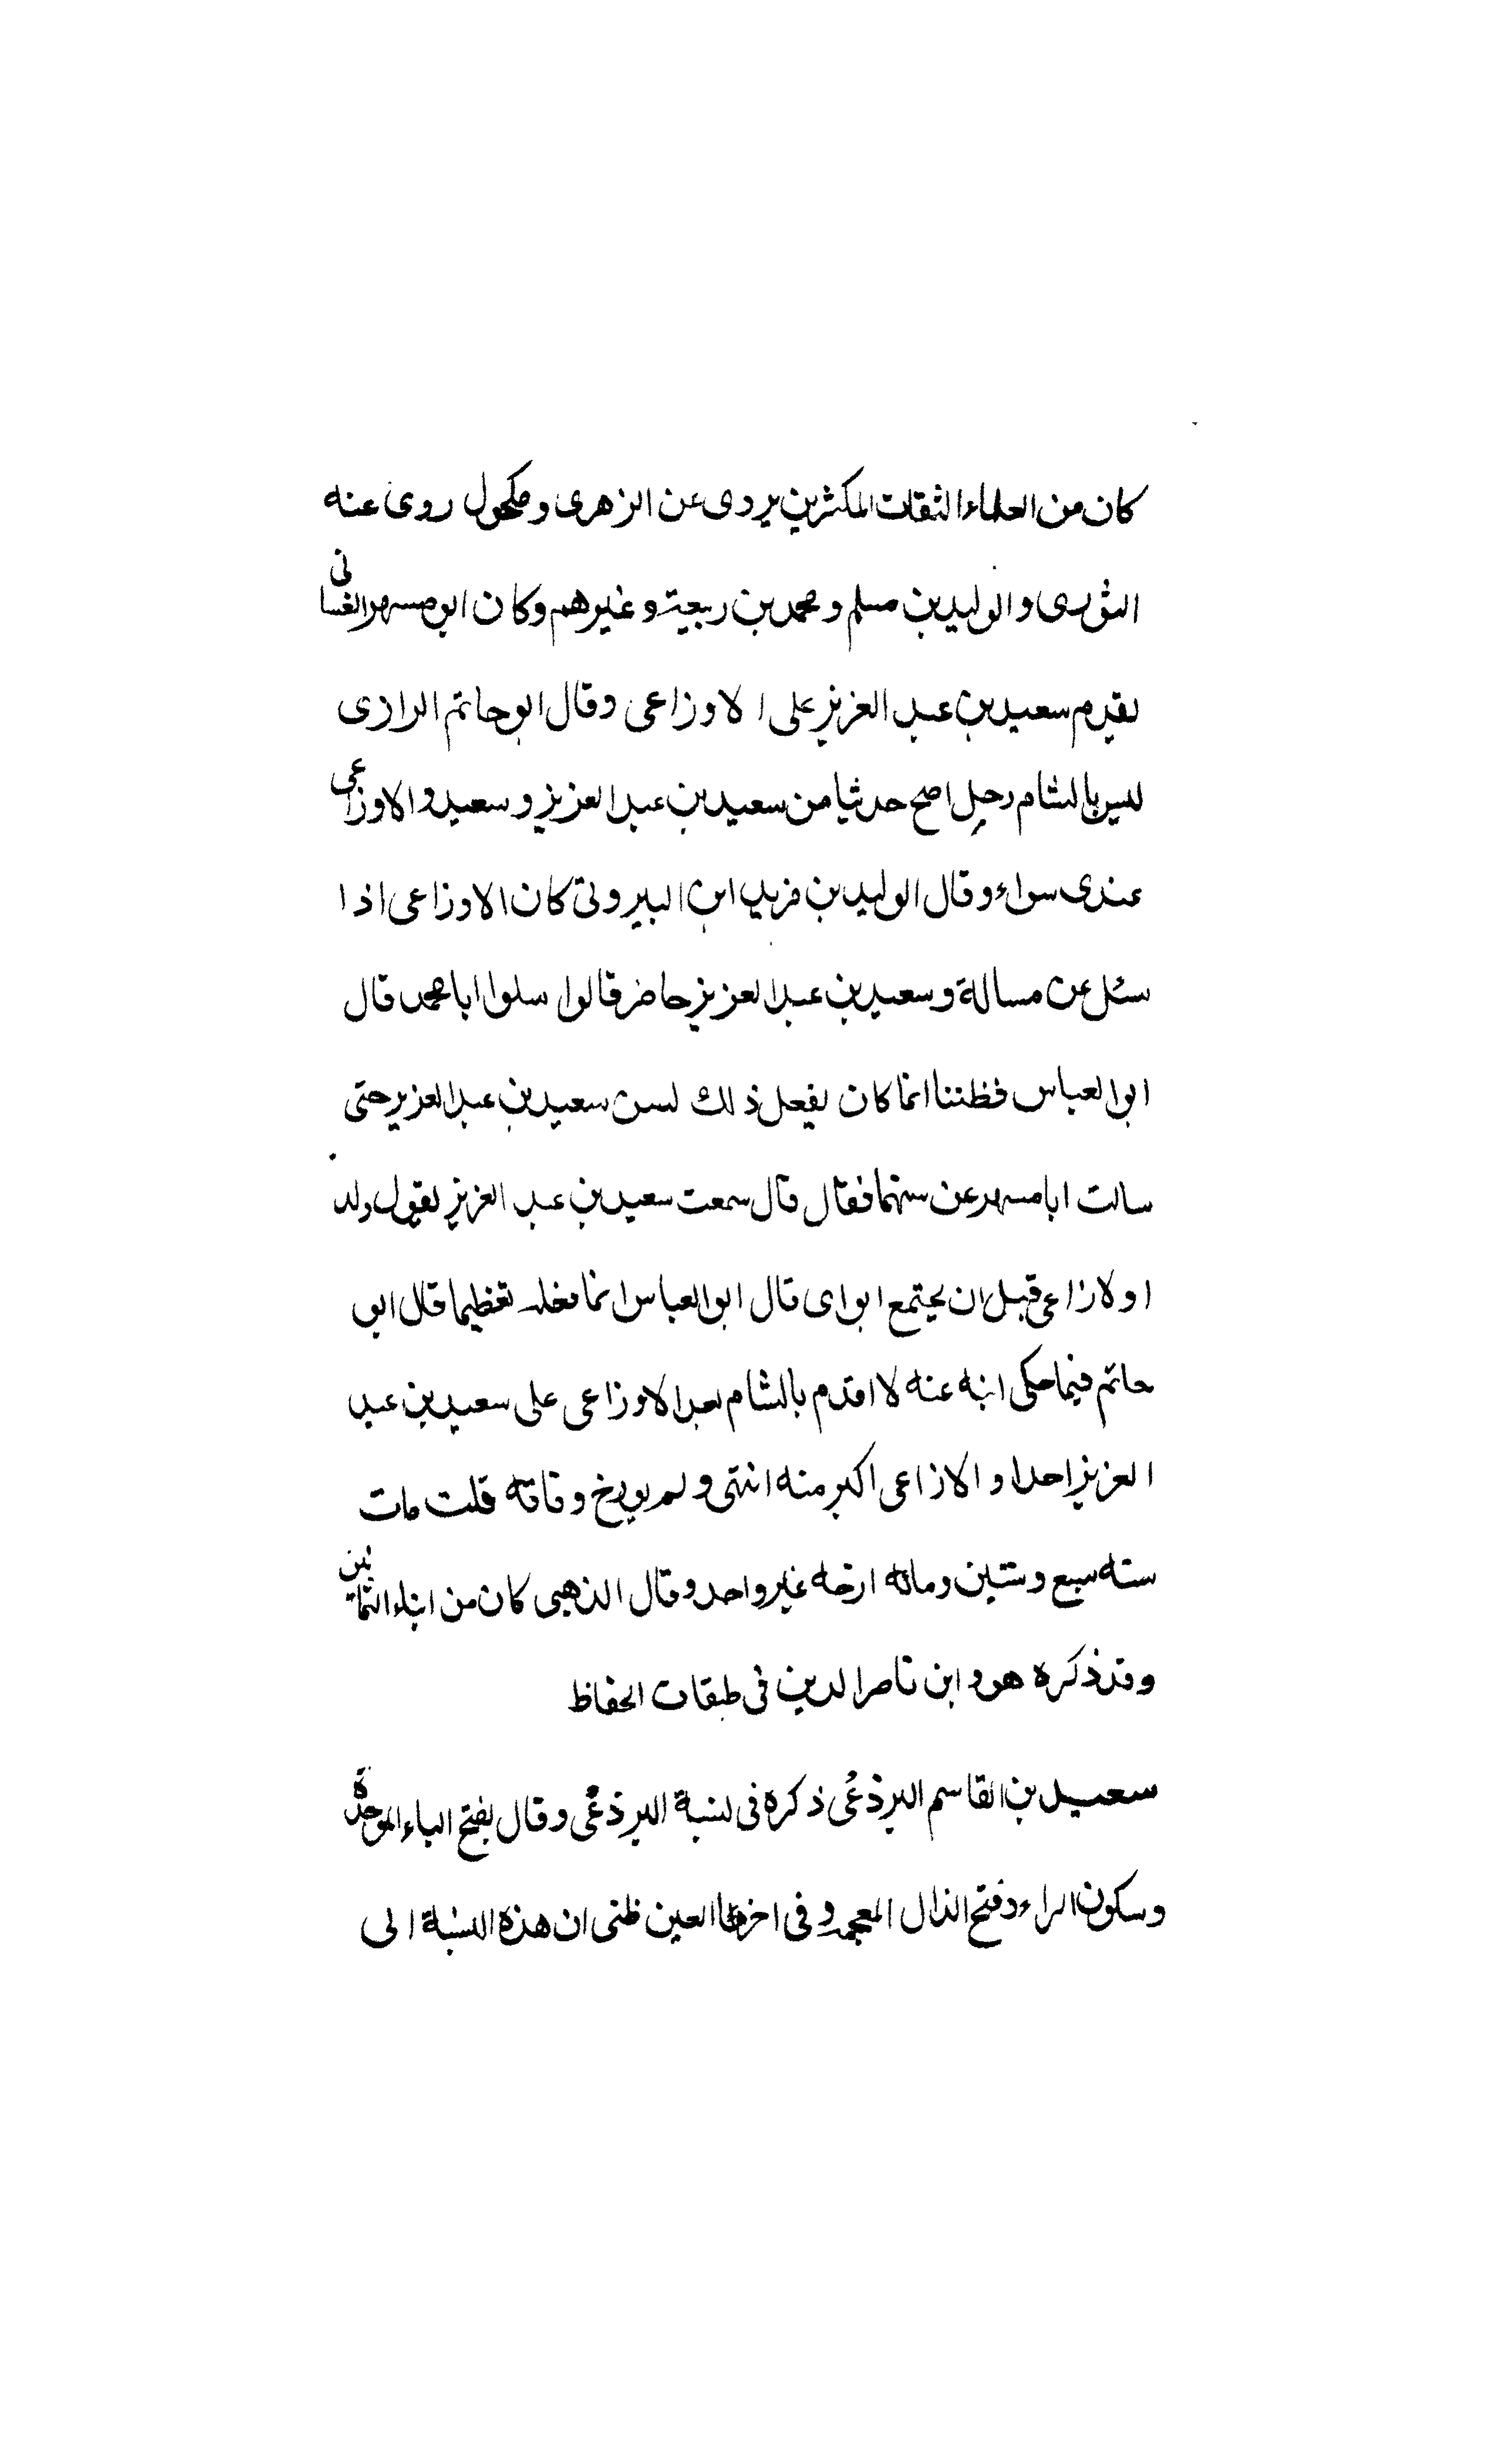 كان من العلماء الثقات المكثرين يروى عن الزهرى ومكحول روى عنه
الثورى والوليد بن مسلم ومحمد بن ربيعة وغيرهم وكان ابو مسهر الغسانى
يقدم سعيد بن عبد العزيز على الاوزاعى وقال ابو حاتم الرازى
ليس بالشام رجل اصح حديثا من سعيد بن عبد العزيز وسعيد والاوزاعى
عندى سواء وقال الوليد بن مزيد ابن البيروتى كان الاوزاعى اذا
سئل عن مسالة وسعيد بن عبد العزيز حاضر قالوا سلوا ابا محمد قال
ابو العباس فظننا انما كان يفعل ذلك لسن سعيد بن عبد العزيز حتى
سالت ابا مسهر عن سنهما فقال قال سمعت سعيد بن عبد العزيز يقول ولد
اولازاعى قبل ان يجتمع ابواى قال ابو العباس انما فعله تعظيما قال ابو
حاتم فيما حكى ابنه عنه لا اقدم بالشام بعد الاوزاعى على سعيد بن عبد
العزيز احدا و الازاعى اكبر منه انتهى ولم يورخ وفاته قلت مات
سنه سبع وستين ومائه ارخه غير واحد وقال الذهبى كان من ابناء الثمانين
وقد ذكره هو وابن ناصر الدين فى طبقات الحفاظ
سعيد بن القاسم البرذعى ذكره فى نسبة البرذعى وقال بفتح الباء الموحدة
وسكون الراء وفتح الذال المعجمه وفى اخرها العين ظنى ان هذه النسبة الى